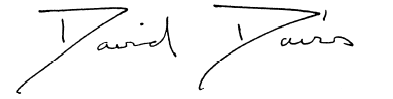 David Davis